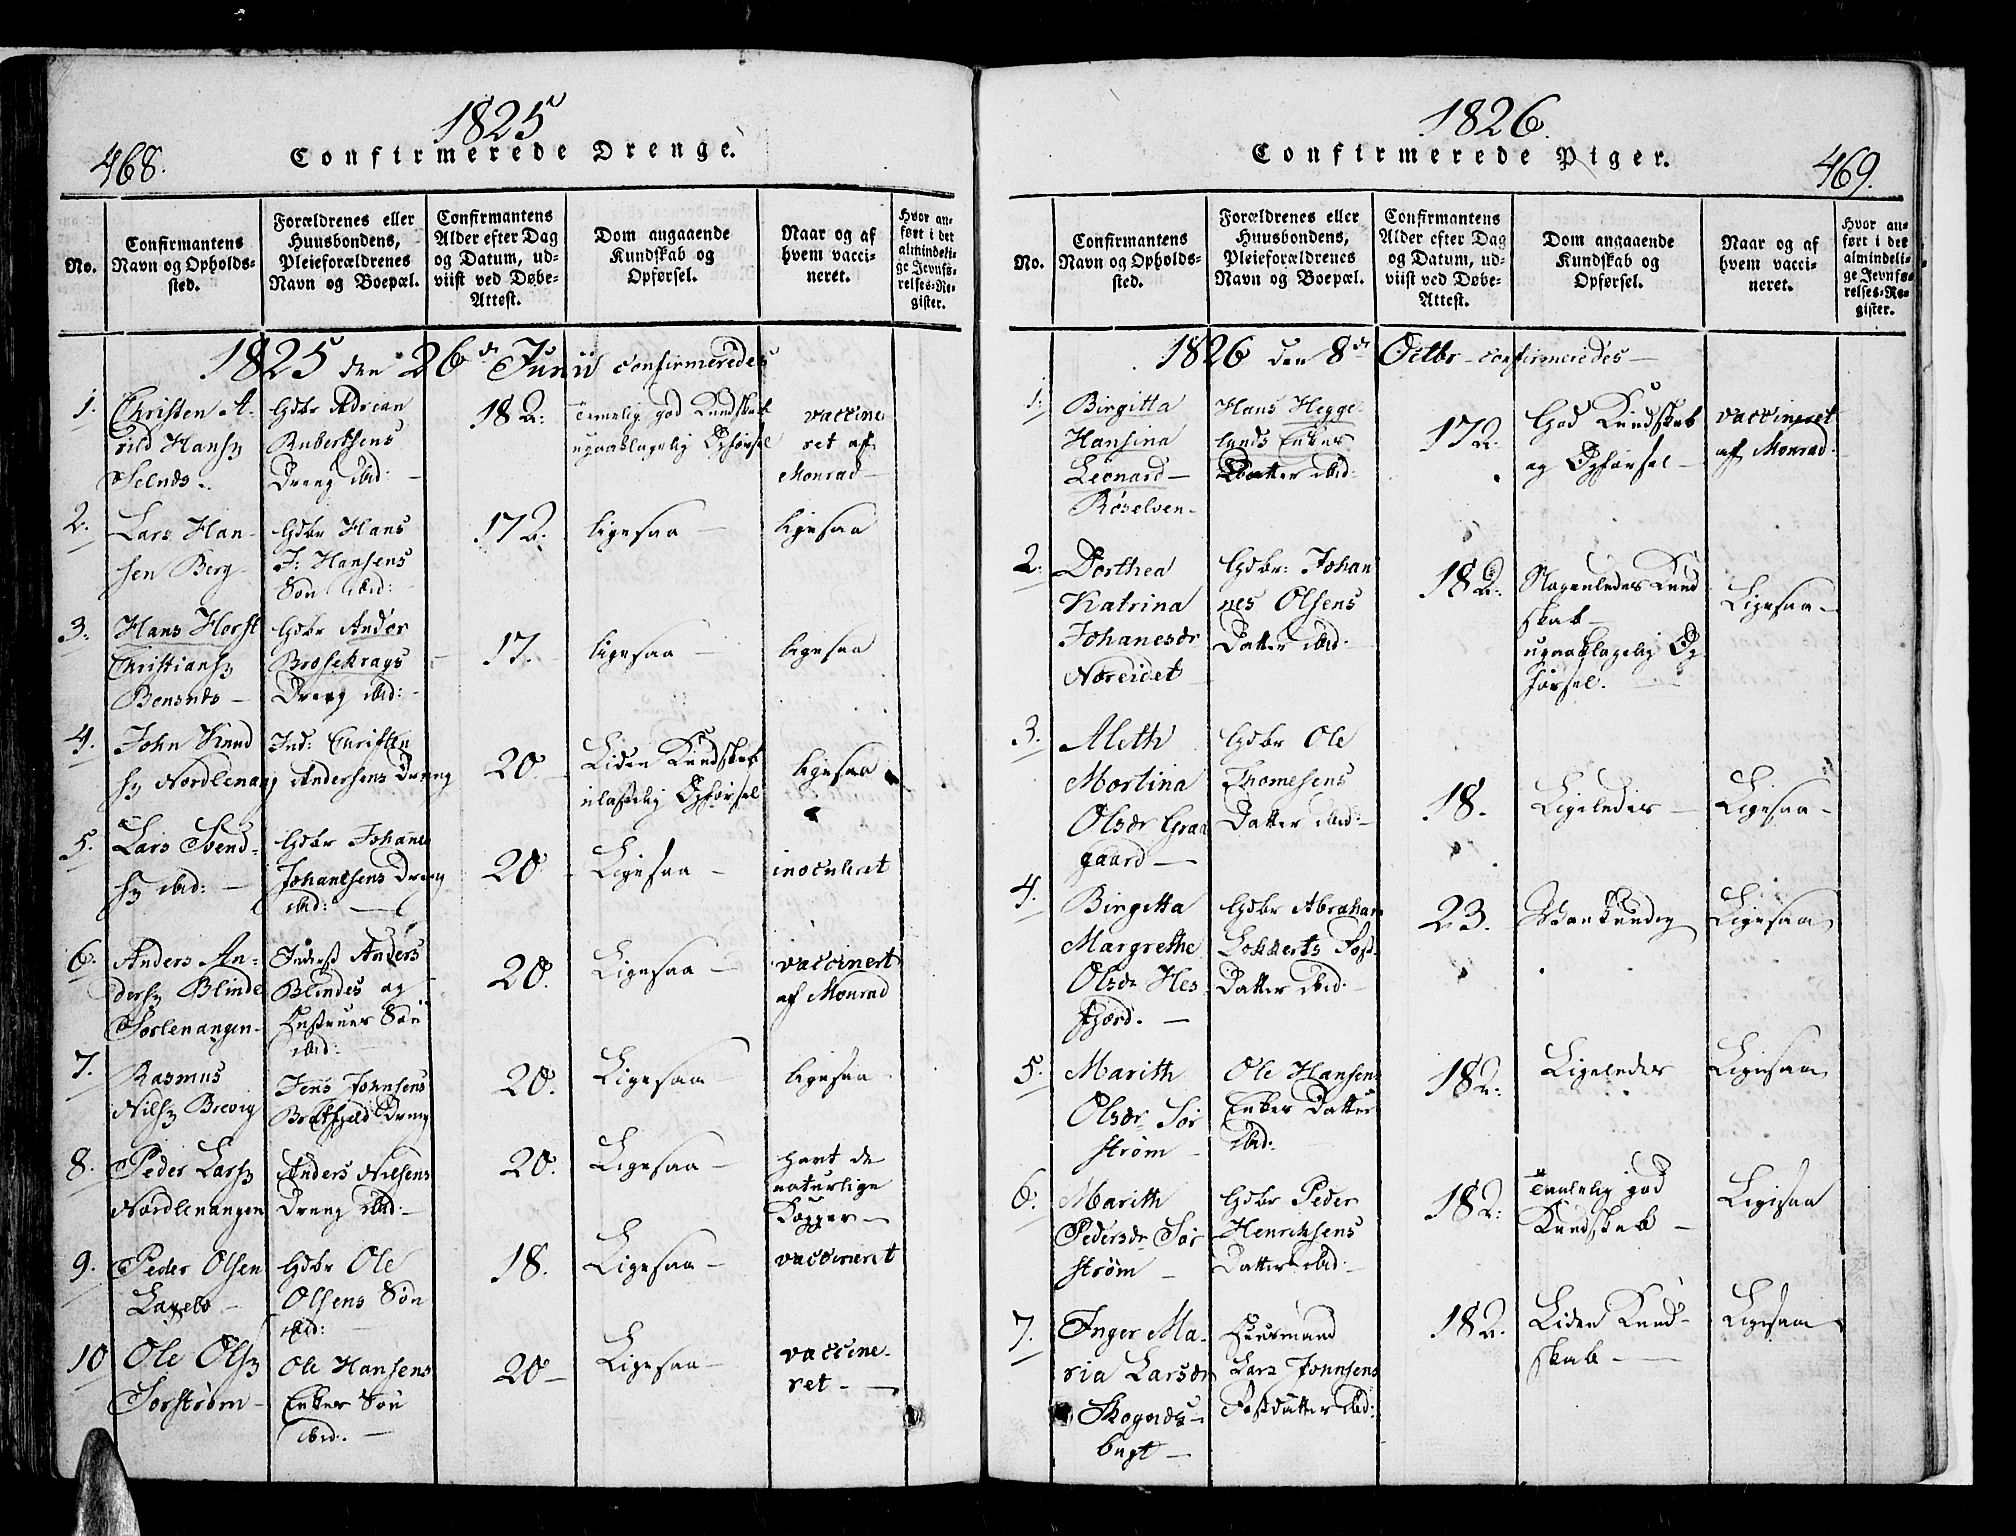 1825
468.
Confirmerede Drenge.
No.
Confirmantens
Navn og Opholds-
sted.
Forældrenes eller
Huusbondens,
Pleieforældrenes
Navn og Boepæl.
Confirmantens
Alder efter Dag
og Datum, ud-
viist ved Døbe-
Attest.
Dom angaaende
Kundskab og
Opførsel.
Naar og af
hvem vacci-
neret.
Hvor an-
ført i det
almindeli-
ge Jevnfø-
relses-Re-
gister.
1825 den 26de Junii confirmeredes
1.
Christen A-
rild Hans
Gdbr Adrian
Ruberthsens
Dreng ibid
18
Temelig god Kundskab
upaaklagelig Opførsel
vaccine
ret af
Monrad
2.
Lars Han-
sen Berg
Gdbr Hans
J: Hansens
Søn ibid:
17
ligesaa
ligesaa
3.
Hans Horst
Christians
Gdbr Ander
Brosekrags
Dreng ibid:
17.
ligesaa
ligesaa
4.
John Knud
Nordlenang
Ind: Christen
Andersens Dreng
20.
Liden Kundskab
Opførsel
ligesaa
5.
Lars Svend-
ibid:
Gdbr Johannes
Johannesens Dreng
ibid:
20
Ligesaa
inoculeret
6.
Anders An-
ders Blinde
Sørlenangen
Inderst Anders
Blindes og
Hustrues Søn
ibid:
20.
Ligesaa
vaccinert
af Monrad
7.
Rasmus
Nils Brevig
Jens Johnsens
Dreng
20.
Ligesaa
ligesaa
8.
Peder Lars
Nordlenangen
Anders Nilsens
Dreng ibid:
20.
Ligesaa
havt de
naturlige
Kopper
9.
Peder Olsen
Gdbr Ole
Olsens Søn
ibid:
18.
Ligesaa
vaccineret
10
Ole Ols
Sørstrøm
Ole Hansens
Enkes Søn
ibid.
20
Ligesaa
vaccine-
ret
1826.
469.
Confirmerede Piger.
No.
Confirmantens
Navn og Opholds-
sted.
Forældrenes eller
Huusbondens,
Pleieforældrenes
Navn og Boepæl.
Confirmantens
Alder efter Dag
og Datum, ud-
viist ved Døbe-
Attest.
Dom angaaende
Kundskab og
Opførsel.
Naar og af
hvem vacci-
neret.
Hvor an-
ført i det
almindeli-
ge Jevnfø-
relses-Re-
gister.
1826 den 8de Octbr confirmeredes
1.
Birgitta
Hansina
Leonard
Røselven
Hans Hegge-
lunds Enkes
Datter ibid:
17
God Kundskab
og Opførsel
vaccineret
af Monrad.
2.
Dorthea
Katrina
Johanesdr
Noreidet
Gdbr: Johan
nes Olsens
Datter ibid:
18
Nogenledes Kund
skab
upaaklagelig Op
førsel.
Ligesaa
3.
Aleth
Martina
Olsdr Graa
gaard
Gdbr Ole
Thomesens
Datter ibid:
18.
Ligeledes
Ligesaa
4.
Birgitta
Margrethe
Olsdr Hes
fjord.
Gdbr Abraham
Lokkerts Fost
Datter ibid:
23.
Vankundig
Ligesaa
5.
Marith
Olsdr Sør
strøm
Ole Hansens
Enkes Datter
ibid:
18
Ligeledes
Ligesaa
6.
Marith
Pedersdr Sør
strøm
Gdbr Peder
Henriksens
Datter ibid:
18
Taalelig god
Kundskab
Ligesaa
7.
Inger Ma-
ria Larsdr
Skognes-
bugt
Huusmand
Lars Johnsens
Fostdatter ibid:
18
Liden Kund-
skab
Ligesaa